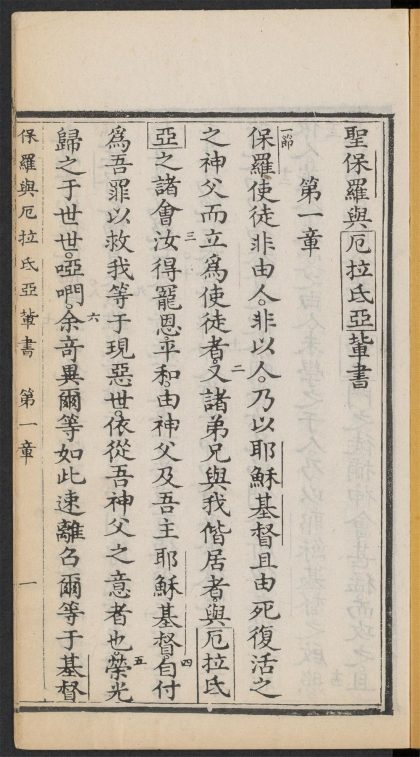 聖保羅與厄拉氏亞輩書
第一章
一節保羅使徒非由人。非以人。乃以耶穌基督且由死復活之
之神父而立為使徒者。二又諸弟兄與我偕居者。與厄拉氏
亞之諸會三汝得寵恩平和。由神父及吾主耶穌基督。四自付
為吾罪以救我等于現惡世。依從吾神父之意者也。五榮光
歸之于世世。啞。六余奇異爾等如此速離召爾等于基督
保羅與厄拉氏亞輩書 第一章 一